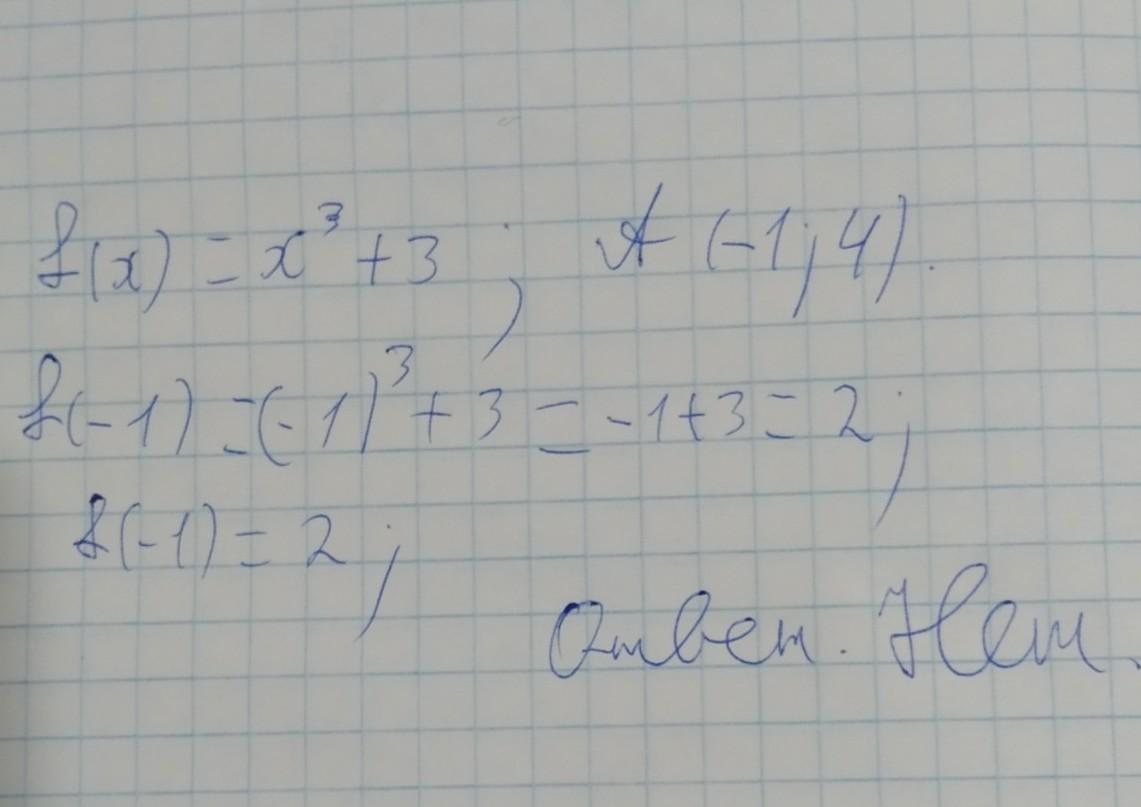 f(x) = x³ + 3 ; A (-1; 4).
f(-1) = (-1)³ + 3 = -1+3 = 2 ;
f(-1) = 2 ;
Ответ. Нет.